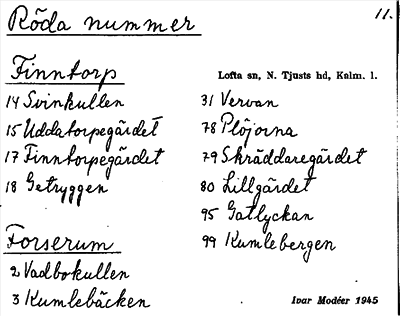 Röda nummer
11.
Finntorp
Lofta sn, N. Tjusts hd, Kalm. l.
14 Svinkullen
15 Uddatorpegärdet
17 Finntorpegärdet
18 Getryggen
Forserum
2 Vadbokullen
3 Kumlebäcken
31 Vervan
78 Plöjorna
79 Skräddaregärdet
80 Lillgärdet
95 Gatlyckan
99 Kumlebergen
Ivar Modéer 1945